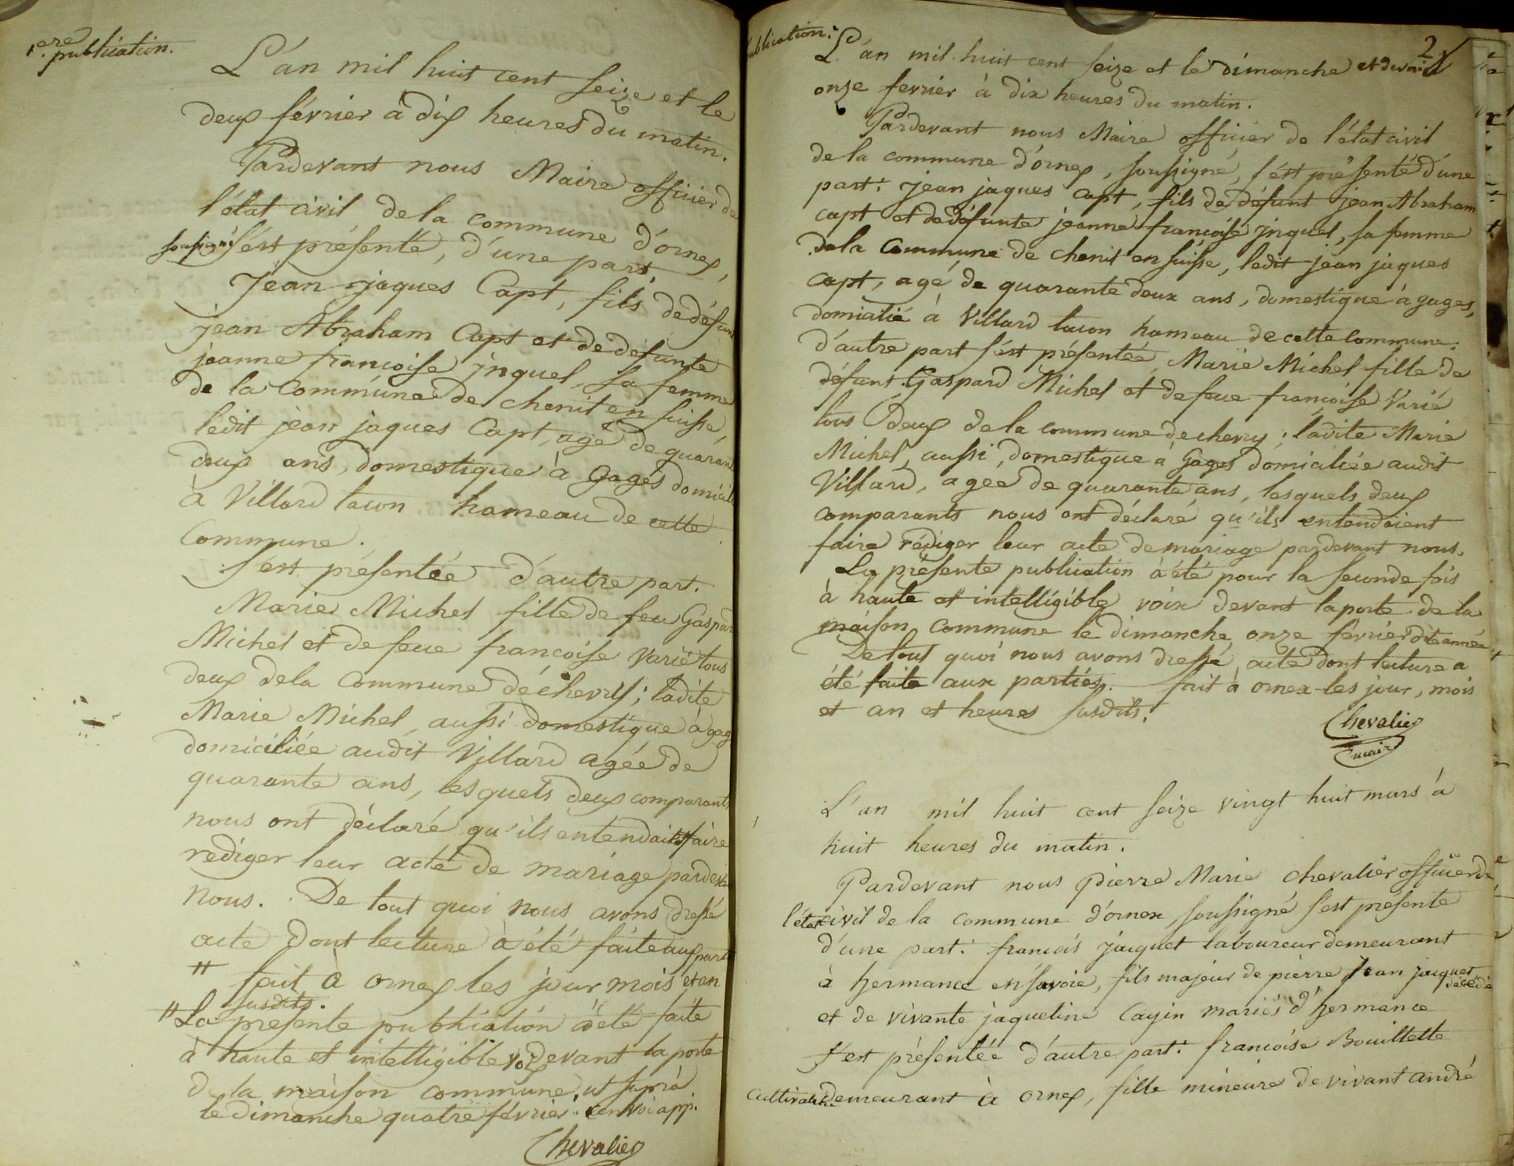 1.ere publication.
L'an mil huit cent seize et le
deux février à dix heures du matin.
Pardevant nous Maire officier de
l'état civil de la commune d'ornex,
soussigné s'est présenté, d'une part
Jean jaques Capt, fils de défunt
jean Abraham Capt et de défunte
jeanne françoise jnquel, sa femme
de la Commune de chenit en suisse
ledit jean jaques Capt, agé de quarante
deux ans, domestique à Gages domicilié
à Villard tacon hameau de cette
Commune.
S'est présentée d'autre part.
Marie Michel fille de feu Gaspard
Michel et de feue francoise Varié tous
deux de la Commune de chevry; ladite
Marie Michel aussi domestique à gag
domiciliée audit Villard agée de
quarante ans, lesquels deux comparants
nous ont déclaré qu'ils entendaint faire
rediger leur acte de mariage pardevant
nous. De tout quoi nous avons dressé
acte dont lecture a été faite aux part
# fait à ornex les jour mois et an
susdits.
# La presente publication a été faite
à haute et intelligible voix devant la porte
de la maison commune, ut suprà
le dimanche quatre février. renvoi app.
Chevalier
publication:
2
L'an mil huit cent seize et le dimanche
onze fevrier à dix heures du matin.
Pardevant nous Maire officier de l'état civil
de la commune d'ornex, soussigné, s'est présenté d'une
part: jean jaques Capt, fils de défunt jean Abraham
capt et de défunte jeanne françoise jnquel, sa femme
de la Commune de chenit en suisse, ledit jean jaques
capt, agé de quarante deux ans, domestique à gages,
domicilié à Villard tacon hameau de cette Commune.
d'autre part s'est présentée Marie Michel fille de
défunt Gaspard Michel et de feue françoise Varié
tous deux de la commune de chevry; ladite Marie
Michel, aussi domestique à Gages domiciliée audit
Villard, agée de quarante ans, lesquels deux
comparants nous ont déclaré qu'ils entendoient
faire rédiger leur acte de mariage pardevant nous.
La présente publication a été pour la seconde fois
à haute et intelligible voix devant la porte de la
maison commune le dimanche onze février dite année
De tout quoi nous avons dressé acte dont lecture a
été faite aux parties. fait à ornex les jour, mois
et an et heures susdits.
Chevalier
maire
L'an mil huit cent seize vingt huit mars à
huit heures du matin.
Pardevant nous Pierre Marie chevalier officier de
l'état civil de la commune d'ornex soussigné s'est presenté
d'une part: francois jacquet laboureur demeurant
à hermance en Savoie, fils majeur de pierre jean jacquet
décédé
et de vivante jaqueline Cayin mariés d'hermance
s'est présentée d'autre part: francoise Bouillette
cultivatrice demeurant à ornex, fille mineure de vivant andré